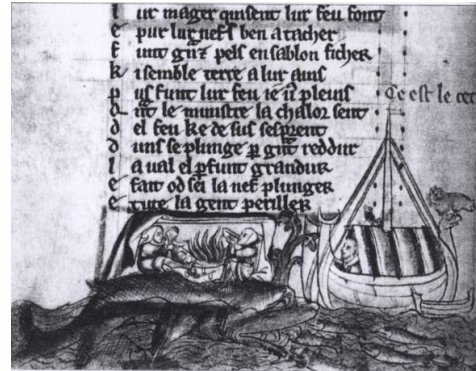 l ur mager quisent lur feu font
e pur lur nefs ben atacher
f unt gñz pels en sablon ficher
k i semble terre a lur
p us funt lur feu ie pleins
q nt le munstre la chalor sent
d el feu ke de sus sesprent
d uns se plunge p gñt reddur
l a val el pfunt grandur
e fait od sei la nef plunger
e tute la gent periller
Ce est le cet